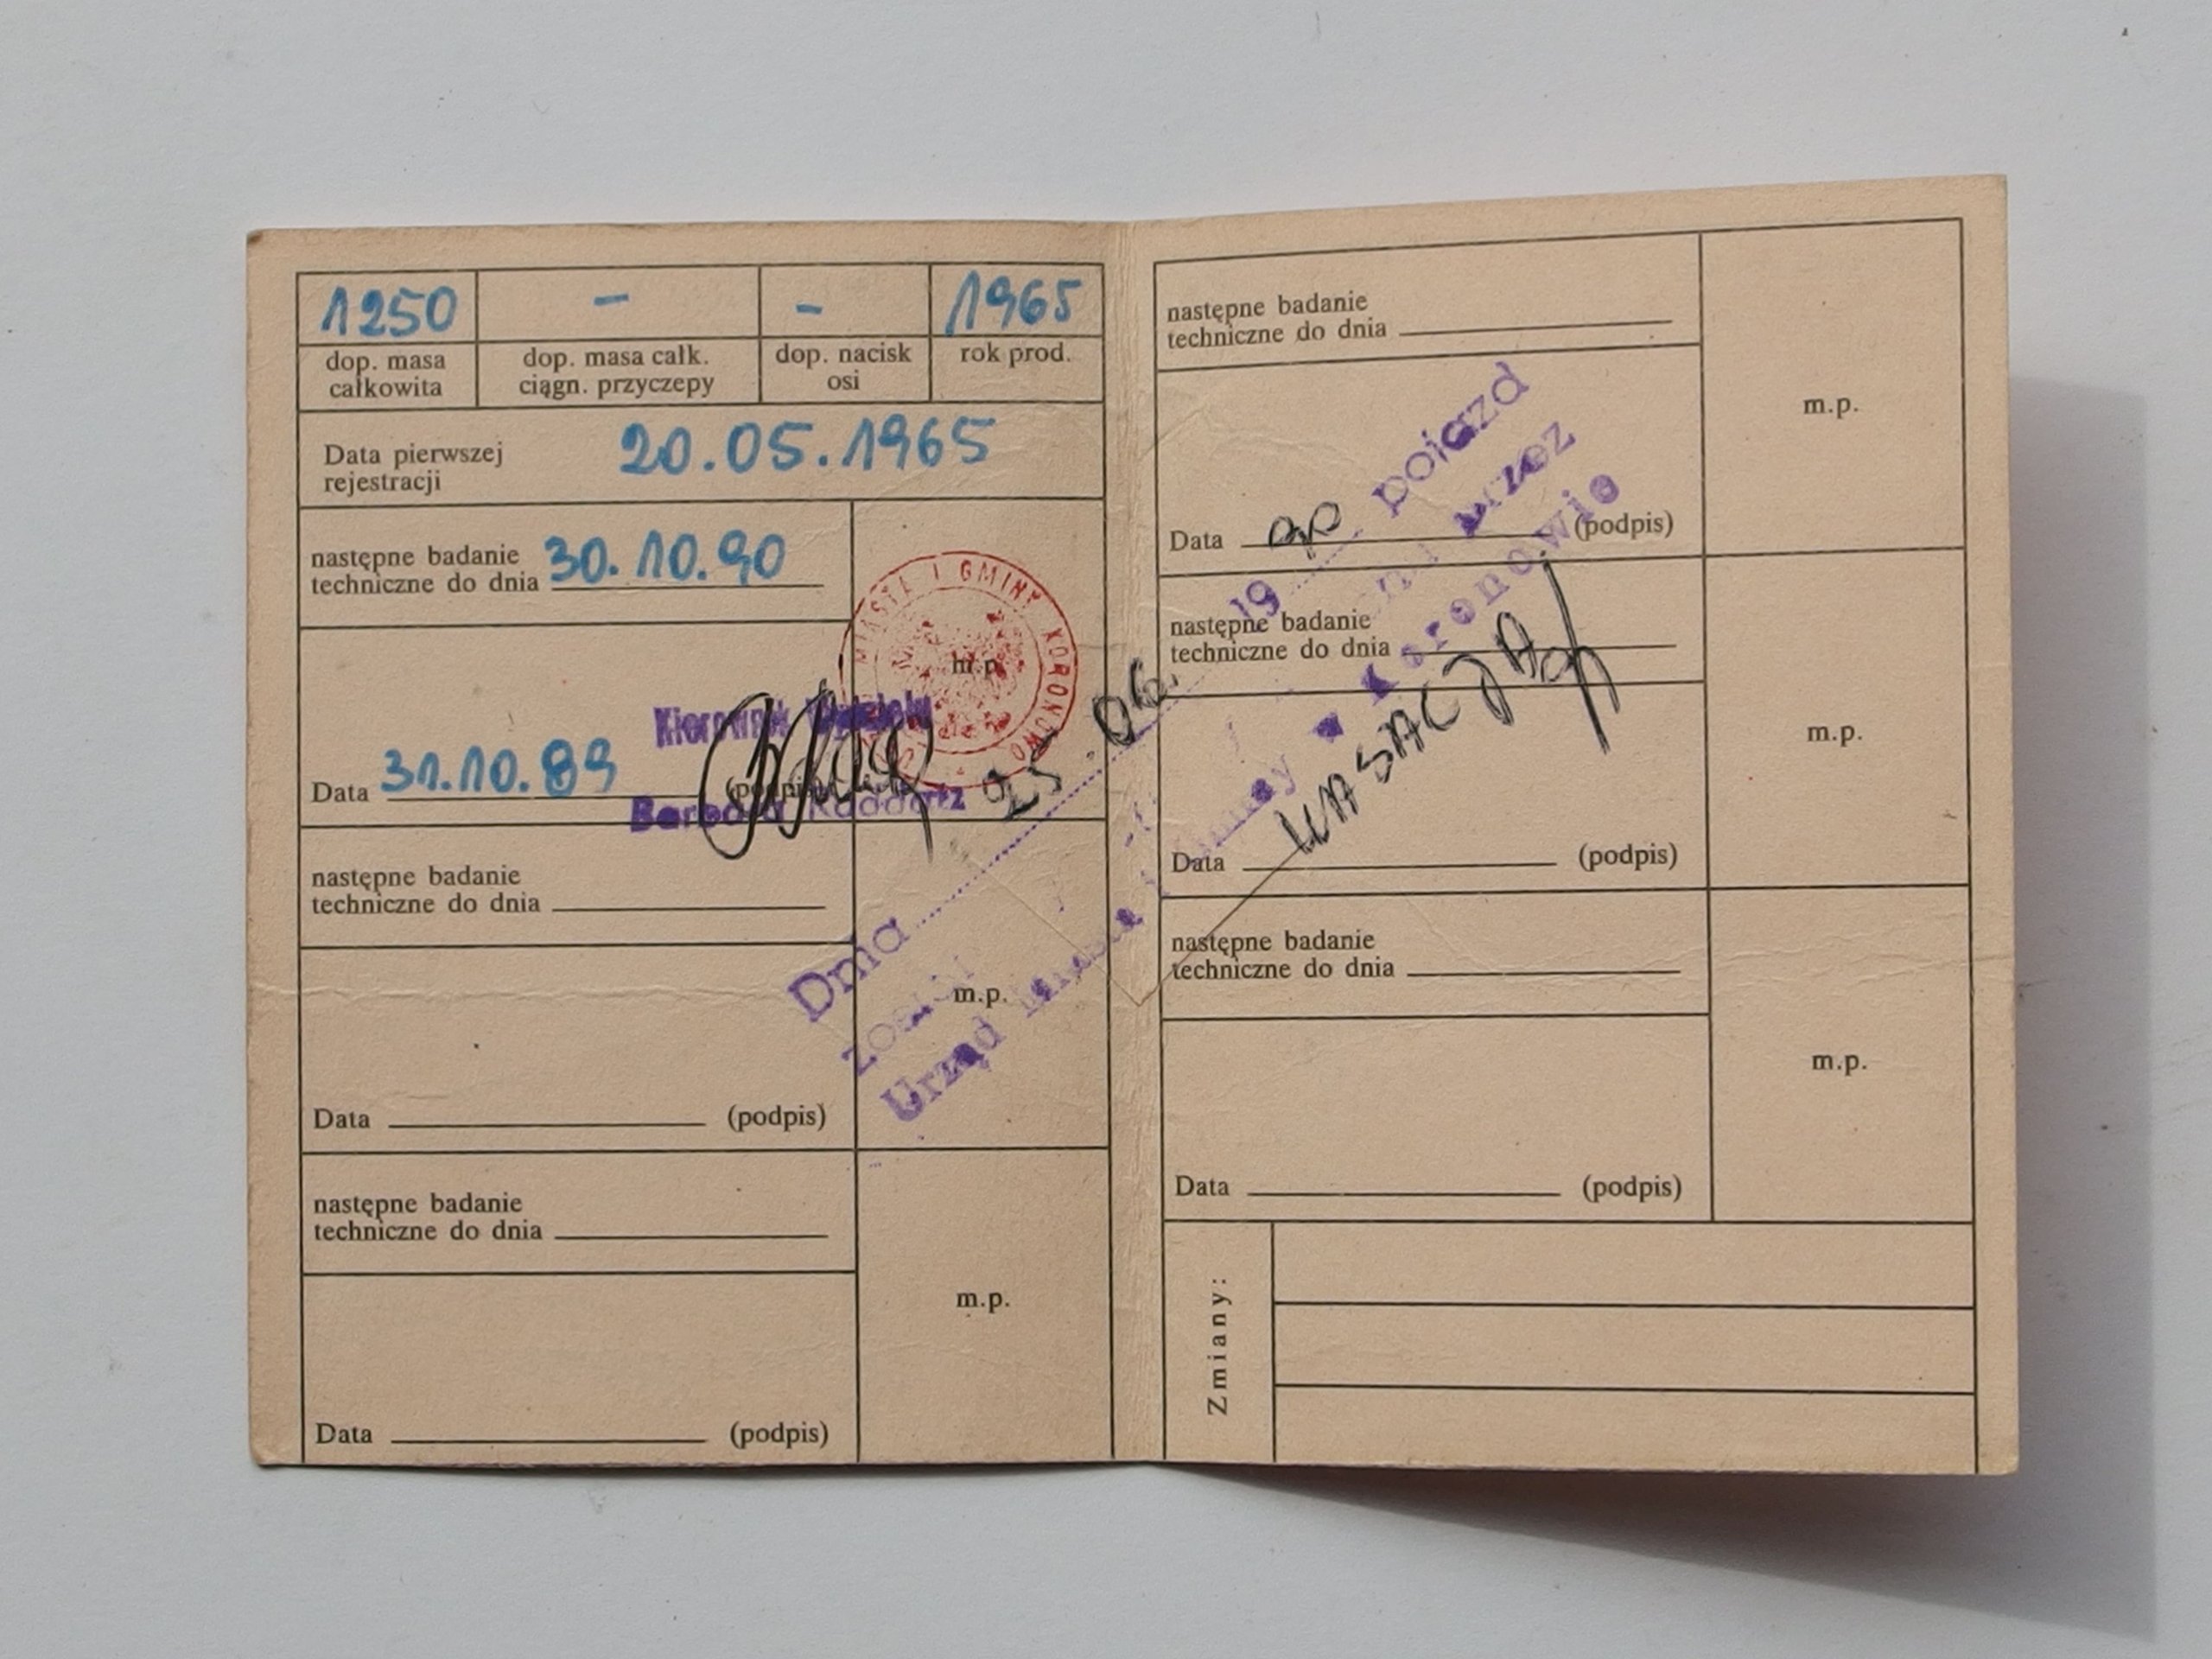 1250 - - 1965
dop. masa całkowita
dop. masa całk. ciągn. przyczepy
dop. nacisk osi
rok prod.
Data pierwszej
rejestracji
20.05.1965
następne badanie
techniczne do dnia 30.10.90
m.p.
MIASTA I GMINY KORONOWO
Kierownik Wydziału
Data 31.10.89 (podpis)
Barbara
następne badanie
techniczne do dnia
m.p.
Data (podpis)
następne badanie
techniczne do dnia
m.p.
Data (podpis)
Dnia 25.06. 19 90 pojazd
został przez
Urząd Miasta i Gminy w Koronowie
KASACJA
następne badanie
techniczne do dnia
m.p.
Data (podpis)
następne badanie
techniczne do dnia
m.p.
Data (podpis)
następne badanie
techniczne do dnia
m.p.
Data (podpis)
Zmiany: